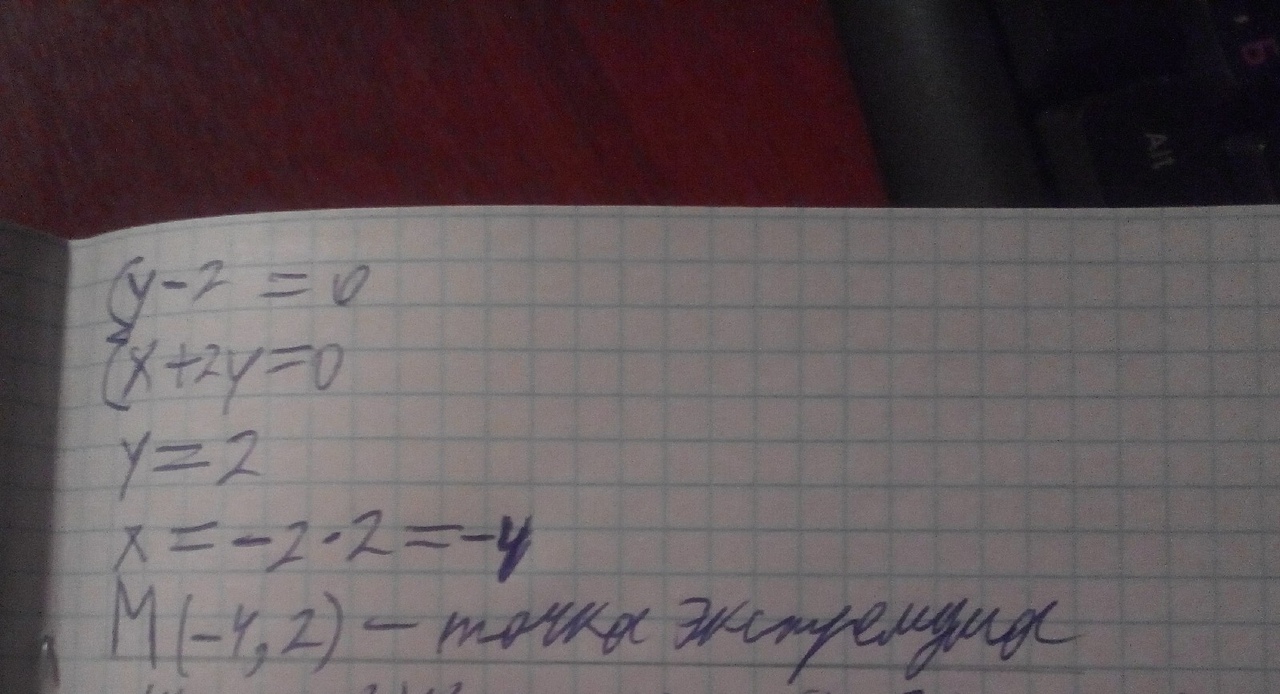 y-2 = 0
x+2y=0
y=2
x=-2·2=-4
M(-4,2) — точка экстремума
Alt
Б